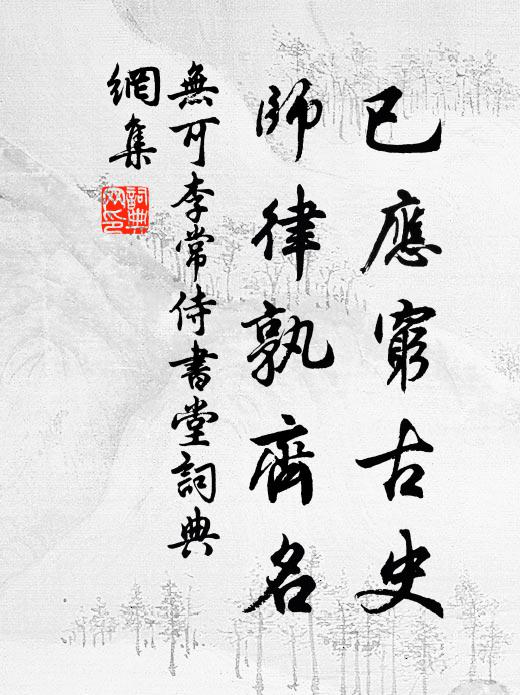 已應窮古史
師律孰齊名
無可李常侍書堂詞典
網集
詞典
网印